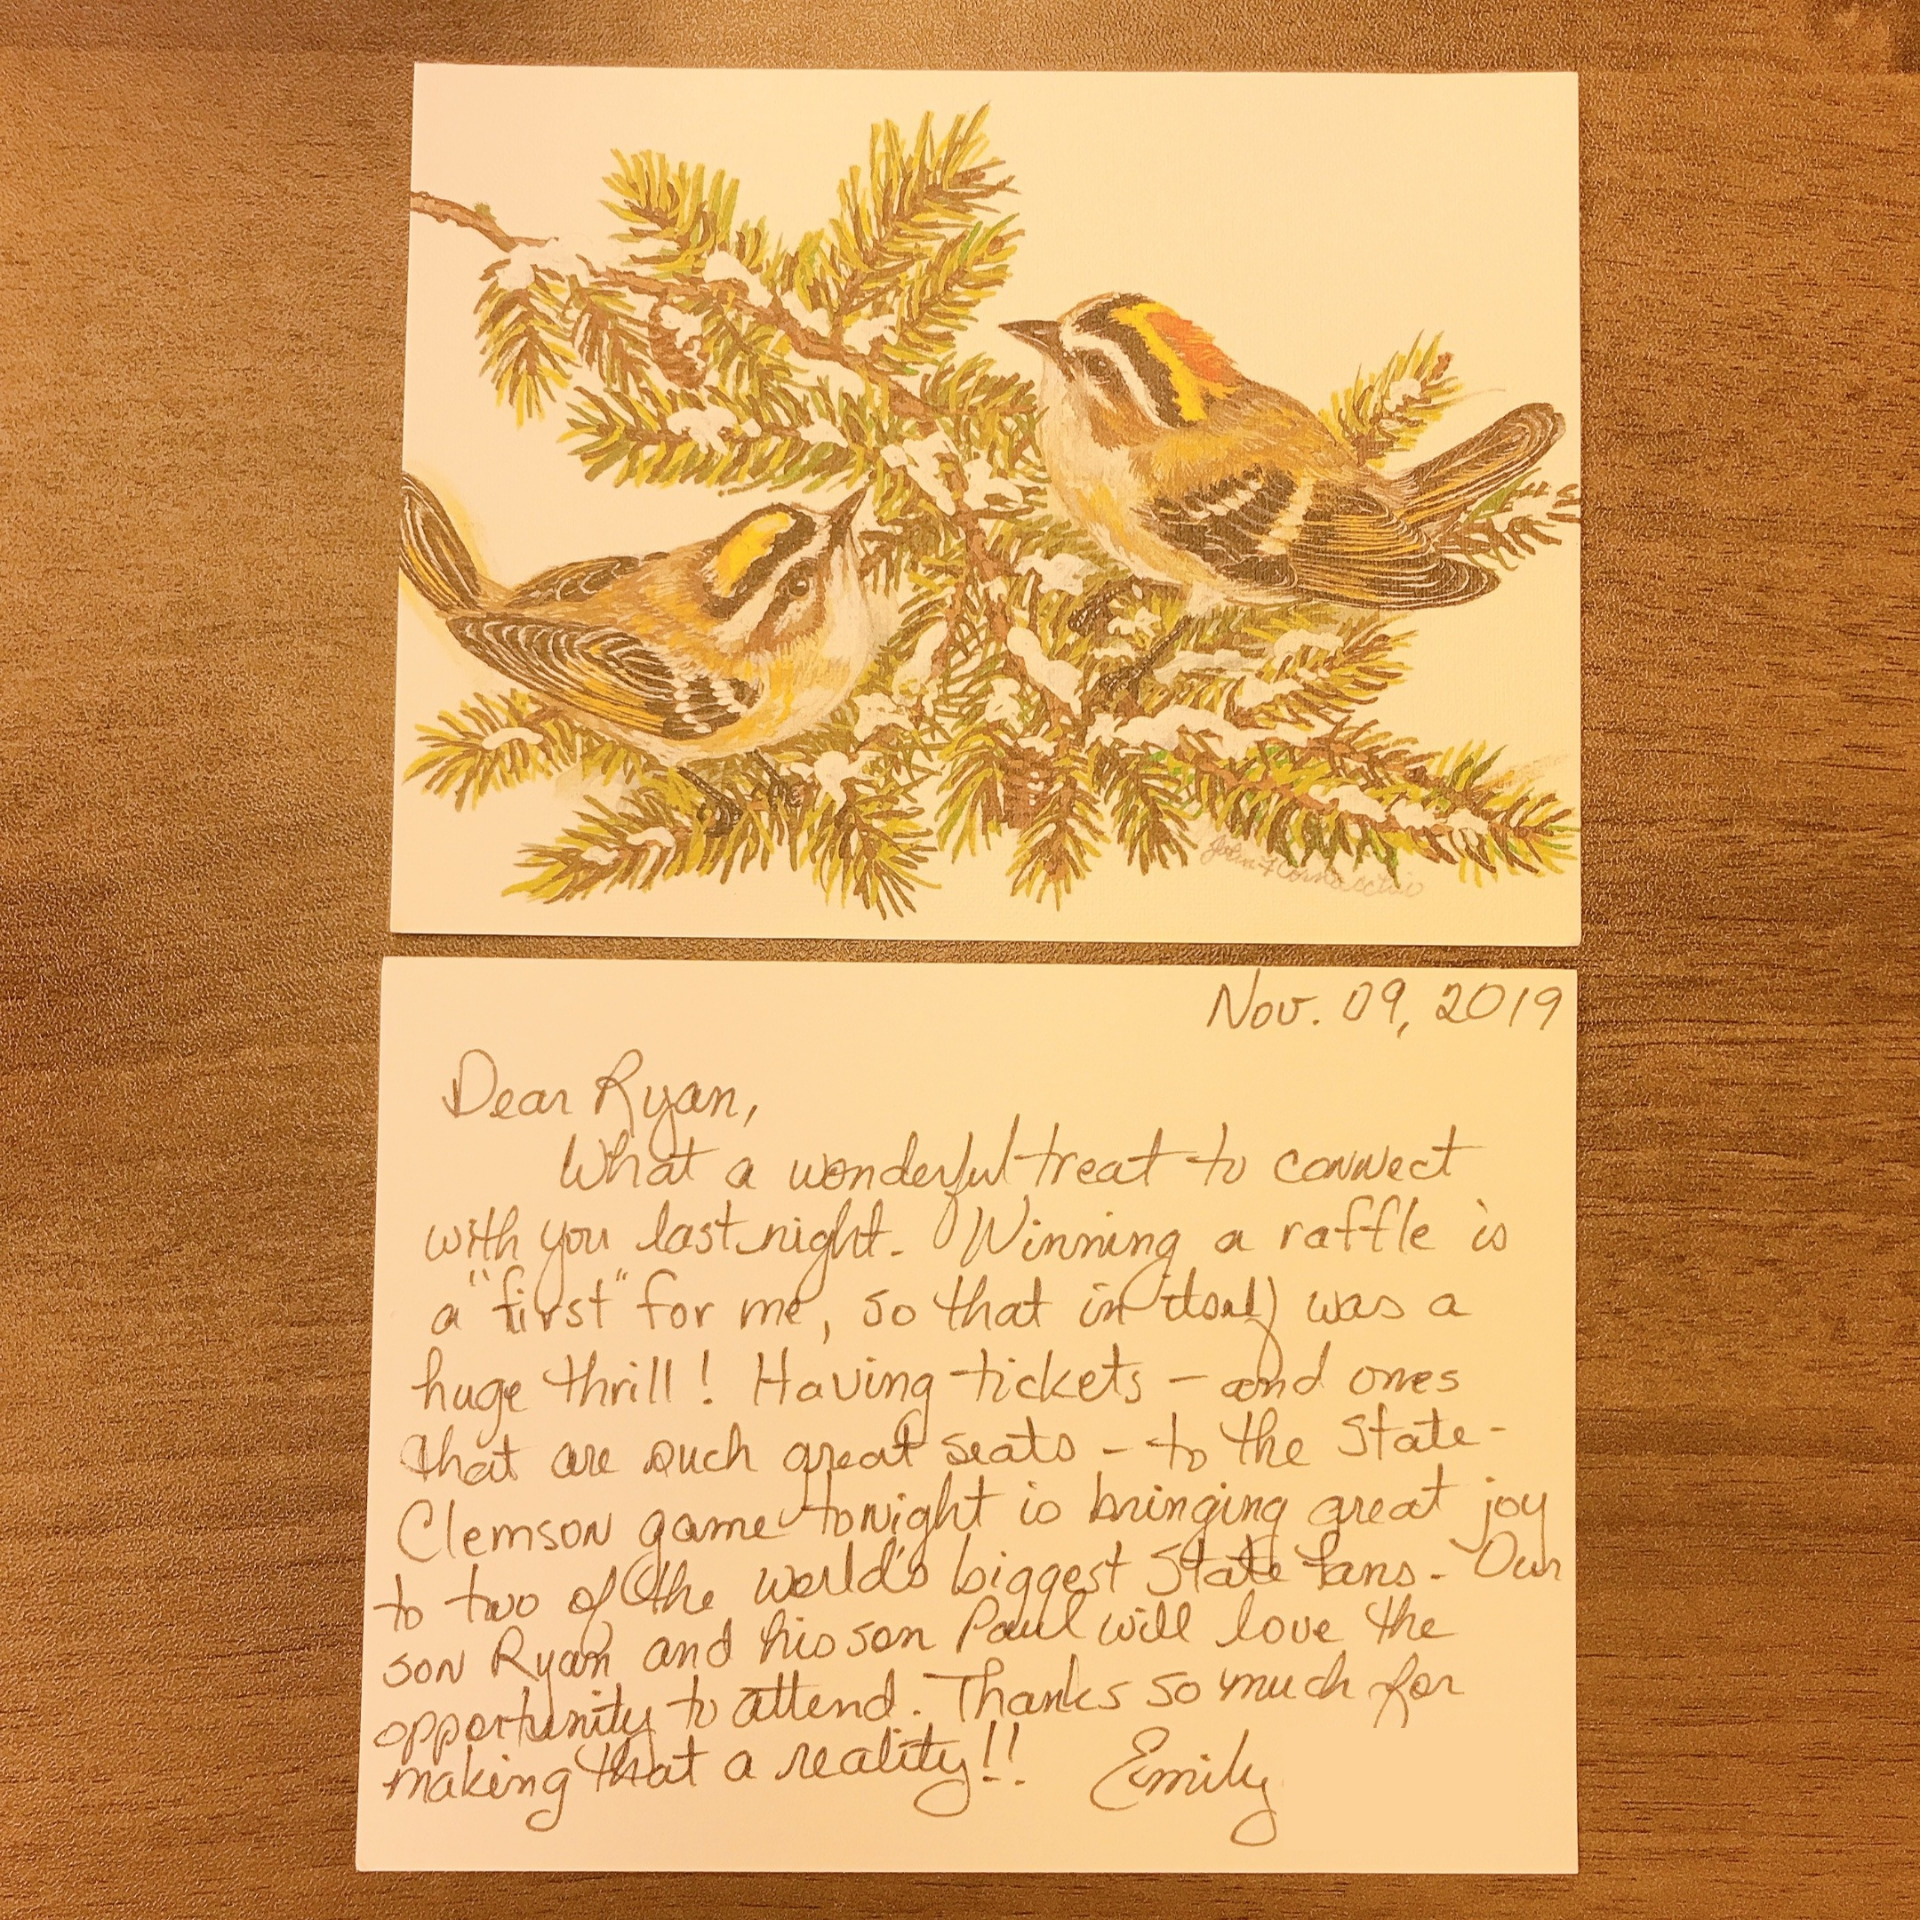 John F
Nov. 09, 2019
Dear Ryan,
What a wonderful treat to connect
with you last night. Winning a raffle is
a "first" for me, so that in itself was a
huge thrill! Having tickets - and ones
that are such great seats - to the State-
Clemson game tonight is bringing great joy
to two of the world's biggest State fans. Our
son Ryan and his son Paul will love the
opportunity to attend. Thanks so much for
making that a reality!! Emily